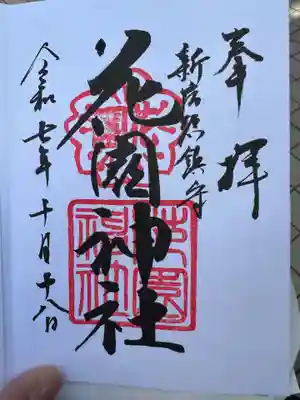 奉拝
新宿総鎮守
花園神社
令和七年十月十八日
花園神社